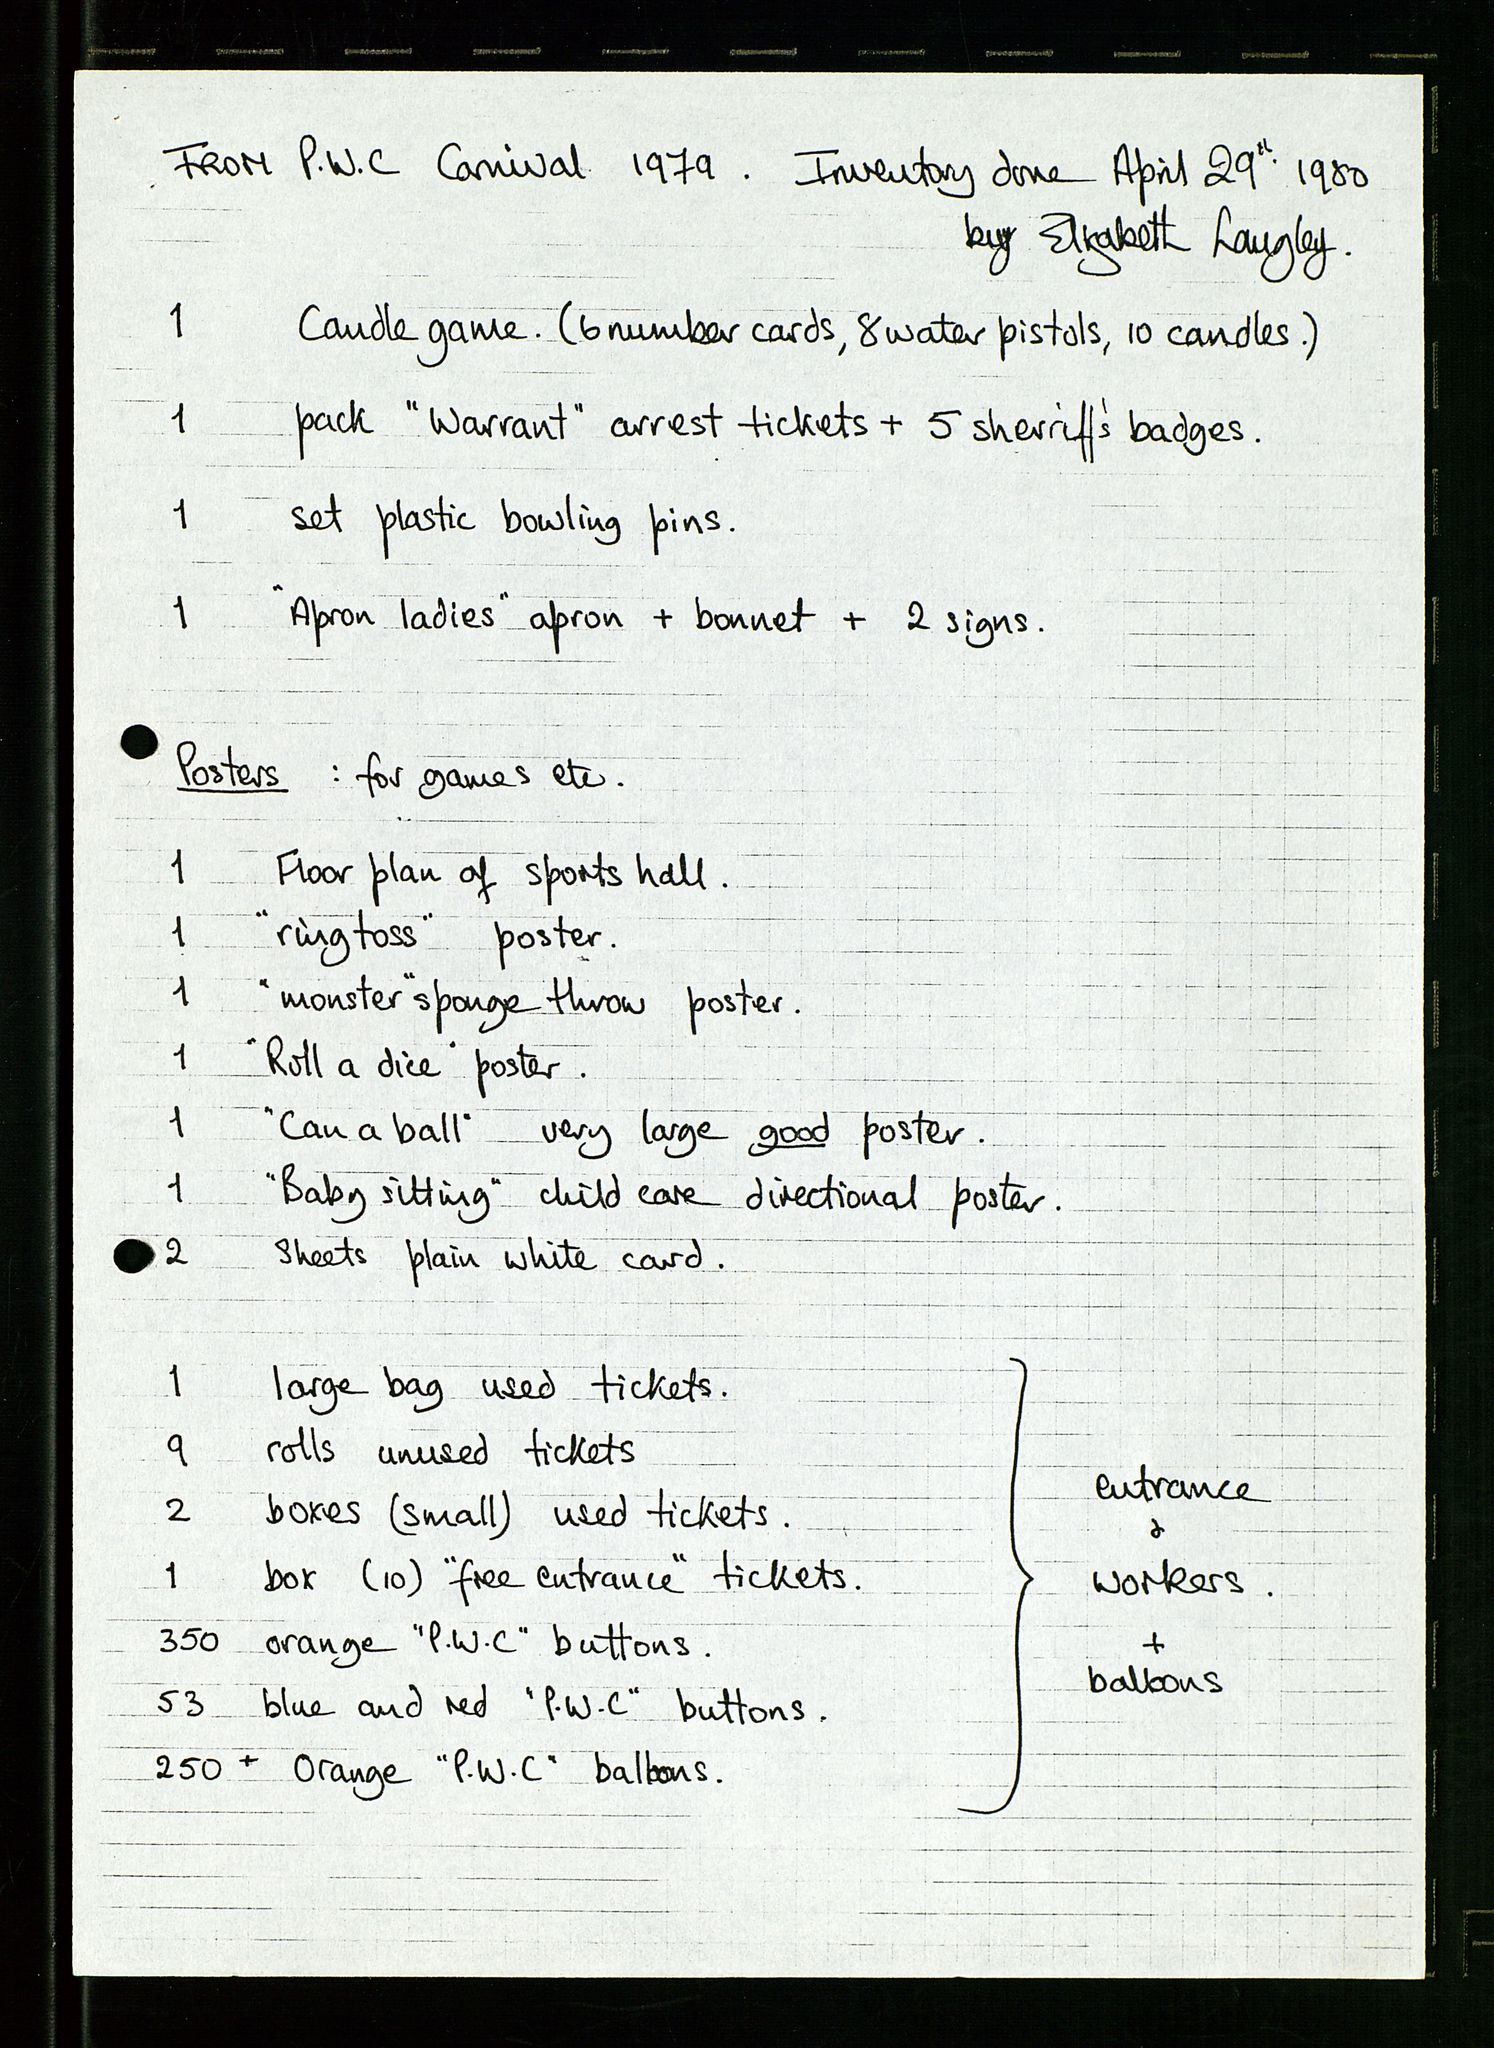 FROM P.W.C Carnival 1979. Inventory done April 29th. 1980
by Elizabeth Langley.
1 Candle game. (6 number cards, 8 water pistols, 10 candles.)
1 pack "Warrant" arrest tickets + 5 sherriff's badges.
1 set plastic bowling pins.
1 "Apron ladies" apron + bonnet + 2 signs.
Posters : for games etc.
1 Floor plan of sports hall.
1 "ring toss" poster.
1 "monster" sponge throw poster.
1 "Roll a dice" poster.
1 "Can a ball" very large good poster.
1 "Baby sitting" child care directional poster.
2 Sheets plain white card.
1 large bag used tickets.
9 rolls unused tickets
2 boxes (small) used tickets.
1 box (10) "free entrance" tickets.
350 orange "P.W.C" buttons.
53 blue and red "P.W.C" buttons.
250 + Orange "P.W.C" balloons.
entrance
&
workers.
+
balloons